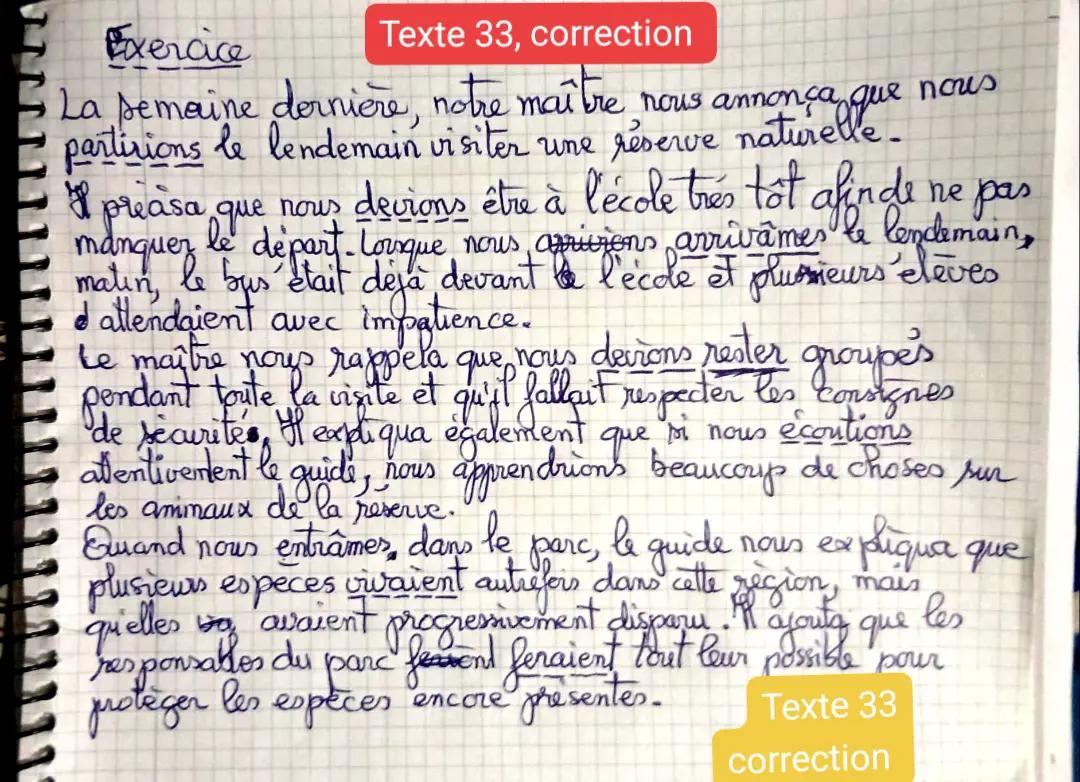 Exercice
Texte 33, correction
La semaine dernière, notre maître nous annonça que nous
partirions le lendemain visiter une réserve naturelle.
Il précisa que nous devions être à l'école très tôt afin de ne pas
manquer le départ. Lorsque nous arrivâmes le lendemain,
matin, le bus était déjà devant l'école et plusieurs élèves
attendaient avec impatience.
Le maître nous rappela que nous devions rester groupés
pendant toute la visite et qu'il fallait respecter les consignes
de sécurité. Il expliqua également que si nous écoutions
attentivement le guide, nous apprendrions beaucoup de choses sur
les animaux de la réserve.
Quand nous entrâmes dans le parc, le guide nous expliqua que
plusieurs espèces vivaient autrefois dans cette région, mais
qu'elles avaient progressivement disparu. Il ajouta que les
responsables du parc feraient tout leur possible pour
protéger les espèces encore présentes.
Texte 33
correction